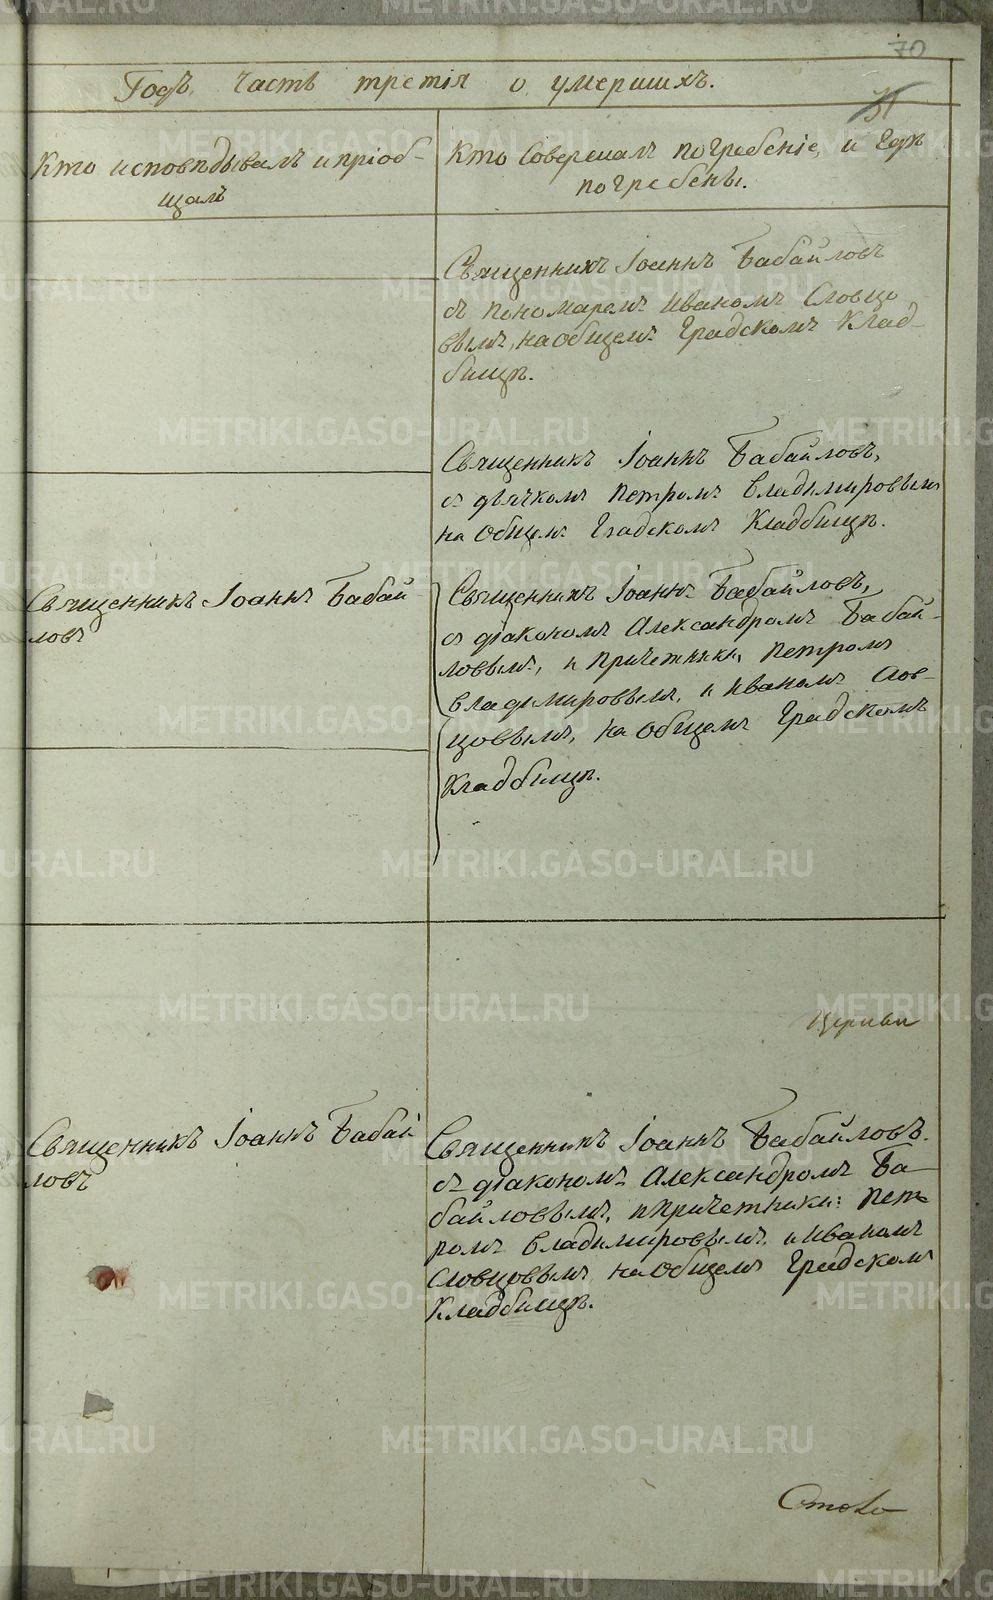 70
31
Годъ часть третія о умершихъ.
Кто исповѣдывалъ и пріоб-
щалъ
Кто Совершалъ погребеніе, и Гдѣ
погребены.
Священникъ Іоаннъ Бабайловъ
съ пономаремъ Иваномъ Словцо
вымъ, на общемъ Градскомъ Клад-
бищѣ.
Священникъ Іоаннъ Бабайловъ,
съ дьячкомъ Петромъ Владимировымъ
на Общемъ Градскомъ Кладбищѣ.
Священникъ Іоаннъ Бабай
ловъ
Священникъ Іоаннъ Бабайловъ,
съ діакономъ Александромъ Бабай-
ловымъ, и Причетники, Петромъ
Владимировымъ, и Иваномъ Слов-
цовымъ, на Общемъ Градскомъ
Кладбищѣ.
Церкви
Священникъ Іоаннъ Бабай
ловъ
Священникъ Іоаннъ Бабайловъ.
съ діакономъ Александромъ Ба-
байловымъ, и Причетники: Пет-
ромъ Владимировымъ и Иваномъ
Словцовымъ на Общемъ Градскомъ
Кладбищѣ.
METRIKI.GASO-URAL.RU